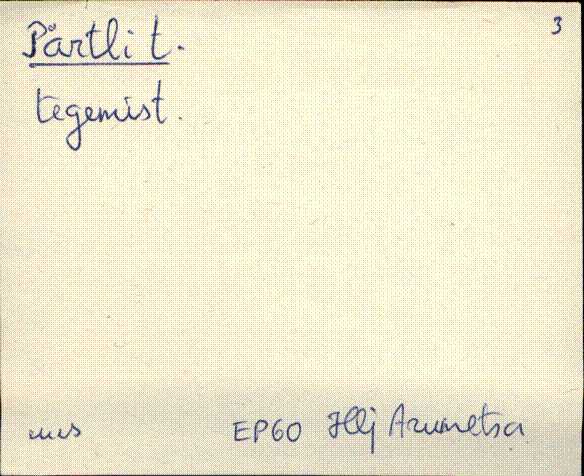 3
Pärtli t.
tegemist.
EP60 Hlj Arumetsa